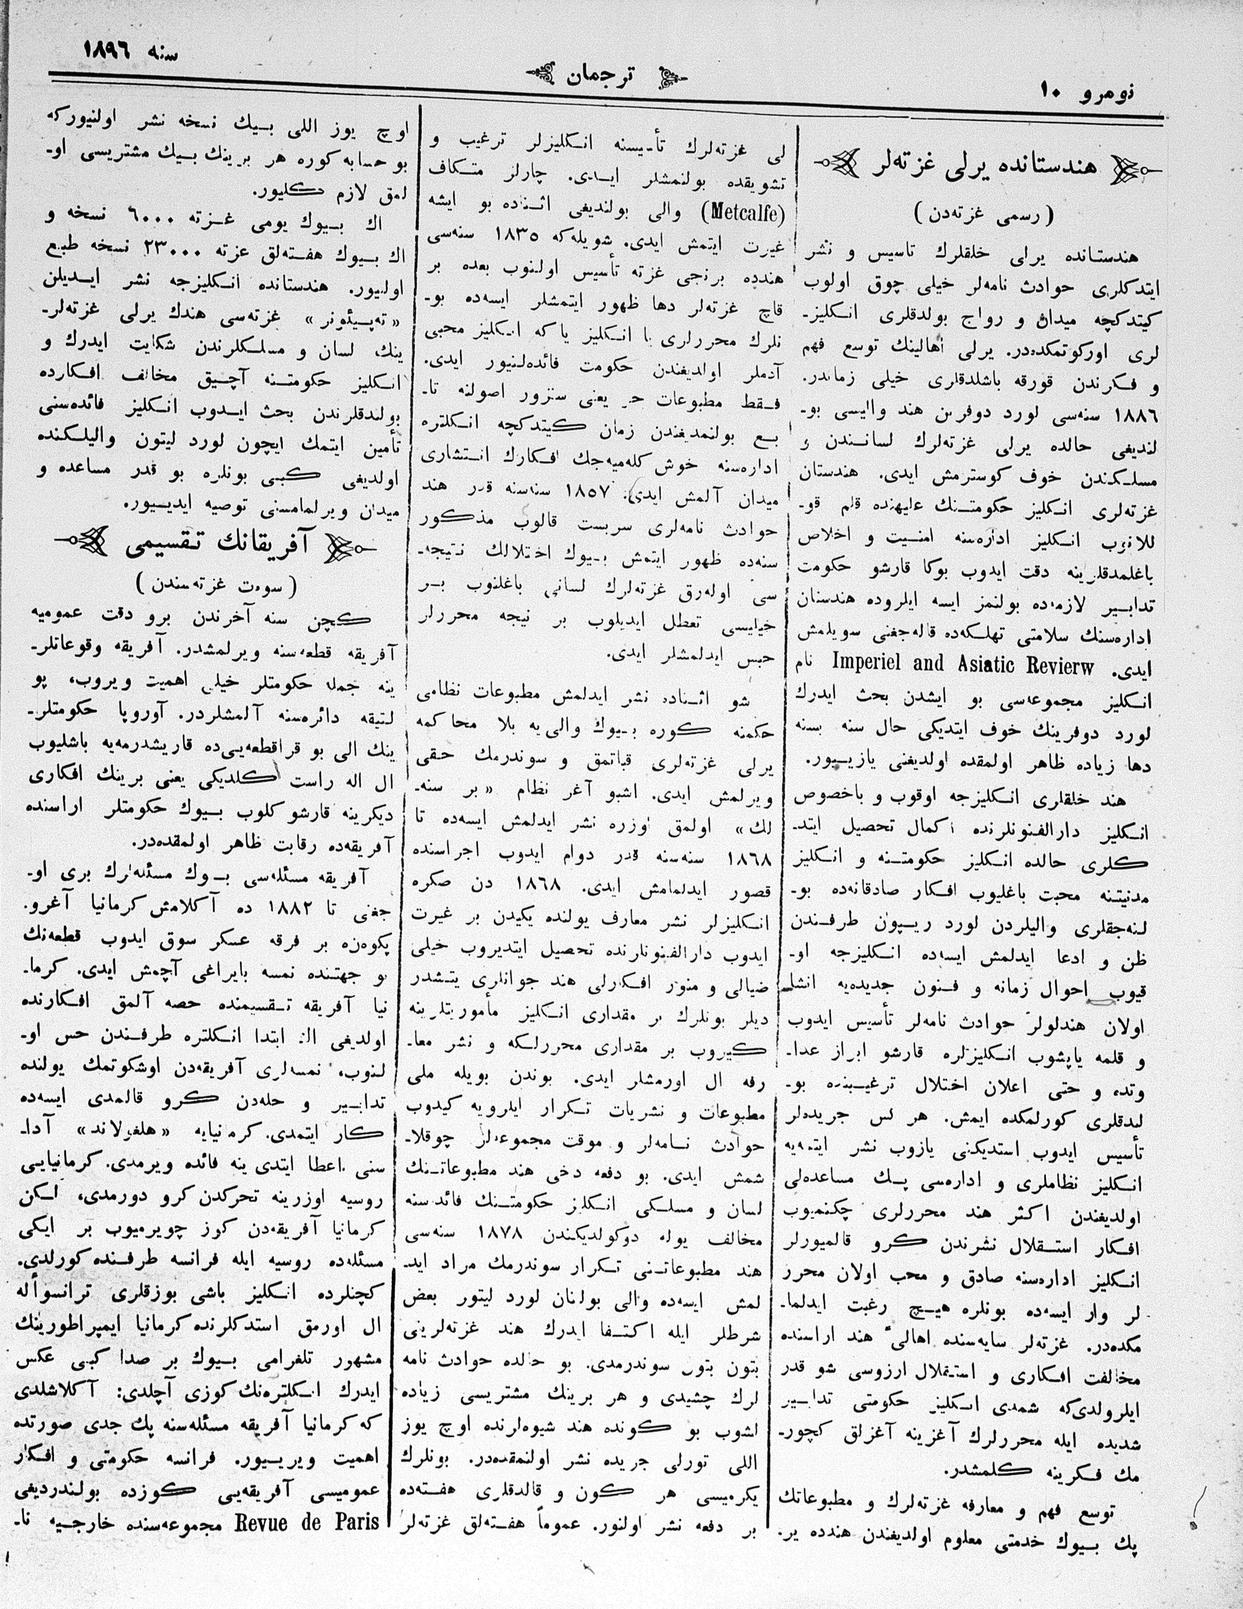 نومرو ١٠
ترجمان
سنه ١٨٩٦
هندستانده يرلی غزته‌لر
( رسمی غزته‌دن )
هندستانده يرلی خلقلرك تاسيس و نشر
ايتدكلری حوادث نامه‌لر خيلی چوق اولوب
كيتدكچه ميدان و رواج بولدقلری انكليز-
لری اوركوتمكده‌در. يرلی اهالينك توسع فهم
و فكرندن قورقه باشلدقلری خيلی زماندر.
١٨٨٦ سنه‌سی لورد دوفرين هند واليسی بو-
لنديغی حالده يرلی غزته‌لرك لساندن و
مسلكندن خوف كوسترمش ايدی. هندستان
غزته‌لری انكليز حكومتنك عليهنده قلم قو-
للانوب انكليز اداره‌سنه امنيت و اخلاص
باغلمدقلرينه دقت ايدوب بوكا قارشو حكومت
تدابير لازمه‌ده بولنمز ايسه ايلروده هندستان
اداره‌سنك سلامتی تهلكه‌ده قاله‌جغنی سويلمش
ايدی. Imperiel and Asiatic Revierw نام
انكليز مجموعه‌سی بو ايشدن بحث ايدرك
لورد دوفرينك خوف ايتديكی حال سنه بسنه
دها زياده ظاهر اولمقده اولديغنی يازييور.
هند خلقلری انكليزجه اوقوب و باخصوص
انكليز دارالفنونلرنده اكمال تحصيل ايتد-
كلری حالده انكليز حكومتنه و انكليز
مدنيتنه محبت باغليوب افكار صادقانه‌ده بو-
لنه‌جقلری واليلردن لورد ريپون طرفندن
ظن و ادعا ايدلمش ايسه‌ده انكليزجه او-
قيوب احوال زمانه و فنون جديده‌يه انشا
اولان هندلولر حوادث نامه‌لر تأسيس ايدوب
و قلمه ياپشوب انكليزلره قارشو ابراز عدا-
وتده و حتی اعلان اختلال ترغيبنده بو-
لندقلری كورلمكده ايمش. هر كس جريده‌لر
تأسيس ايدوب استديكنی يازوب نشر ايتمه‌يه
انكليز نظاملری و اداره‌سی پك مساعده‌لی
اولديغندن اكثر هند محررلری چكنميوب
افكار استقلال نشرندن كرو قالميورلر
انكليز اداره‌سنه صادق و محب اولان محرر
لر وار ايسه‌ده بونلره هيچ رغبت ايدلما-
مكده‌در. غزته‌لر سايه‌سنده اهالیٔ هند اراسنده
مخالفت افكاری و استقلال ارزوسی شو قدر
ايلرولدی‌كه شمدی انكليز حكومتی تدابير
شديده ايله محررلرك آغزينه آغزلق كچور-
مك فكرينه كلمشدر.
توسع فهم و معارفه غزته‌لرك و مطبوعاتك
پك بيوك خدمتی معلوم اولديغندن هندده ير-
لی غزته‌لرك تأسيسنه انكليزلر ترغيب و
تشويقده بولنمشلر ايدی. چارلز متكاف
(Metcalfe) والی بولنديغی اثناده بو ايشه
غيرت ايتمش ايدی. شويله‌كه ١٨٣٥ سنه‌سی
هندده برنجی غزته تأسيس اولنوب بعده بر
قاچ غزته‌لر دها ظهور ايتمشلر ايسه‌ده بو-
نلرك محررلری يا انكليز ياكه انكليز محبی
آدملر اولديغندن حكومت فائده‌لنيور ايدی.
فقط مطبوعات حر يعنی سنزور اصولنه تا-
بع بولنمديغندن زمان كيتدكچه انكلتره
اداره‌سنه خوش كلميه‌جك افكارك انتشاری
ميدان آلمش ايدی. ١٨٥٧ سنه‌سنه قدر هند
حوادث نامه‌لری سربست قالوب مذكور
سنه‌ده ظهور ايتمش بيوك اختلالك نتيجه-
سی اوله‌رق غزته‌لرك لسانی باغلنوب بر
خيليسی تعطل ايديلوب بر نيجه محررلر
حبس ايدلمشلر ايدی.
شو اثناده نشر ايدلمش مطبوعات نظامی
حكمنه كوره بيوك والی‌يه بلا محاكمه
يرلی غزته‌لری قپاتمق و سوندرمك حقی
ويرلمش ايدی. اشبو آغر نظام «بر سنه-
لك» اولمق اوزره نشر ايدلمش ايسه‌ده تا
١٨٦٨ سنه‌سنه قدر دوام ايدوب اجراسنده
قصور ايدلمامش ايدی. ١٨٦٨ دن صكره
انكليزلر نشر معارف يولنده يكيدن بر غيرت
ايدوب دارالفنونلرنده تحصيل ايتديروب خيلی
ضيالی و منور افكارلی هند جوانلری يتشدر
ديلر بونلرك بر مقداری انكليز مأموريتلرينه
كيروب بر مقداری محررلكه و نشر معا-
رفه ال اورمشلر ايدی. بوندن بويله ملی
مطبوعات و نشريات تكرار ايلرويه كيدوب
حوادث نامه‌لر و موقت مجموعه‌لر چوقلا-
شمش ايدی. بو دفعه دخی هند مطبوعاتنك
لسان و مسلكی انكليز حكومتنك فائده‌سنه
مخالف يوله دوكولديكندن ١٨٧٨ سنه‌سی
هند مطبوعاتنی تكرار سوندرمك مراد ايد-
لمش ايسه‌ده والی بولنان لورد ليتور بعض
شرطلر ايله اكتفا ايدرك هند غزته‌لرينی
بتون بتون سوندرمدی. بو حالده حوادث نامه
لرك چشيدی و هر برينك مشتريسی زياده
لشوب بو كونده هند شيوه‌لرنده اوچ يوز
اللی تورلی جريده نشر اولنمقده‌در. بونلرك
يكرميسی هر كون و قالدقلری هفته‌ده
بر دفعه نشر اولنور. عموماً هفته‌لق غزته‌لر
اوچ يوز اللی بيك نسخه نشر اولنيوركه
بو حسابه كوره هر برينك بيك مشتريسی او-
لمق لازم كليور.
اك بيوك يومی غزته ٦٠٠٠ نسخه و
اك بيوك هفته‌لق غزته ٢٣٠٠٠ نسخه طبع
اولنيور. هندستانده انكليزجه نشر ايديلن
«ته‌پيئونر» غزته‌سی هندك يرلی غزته‌لر-
ينك لسان و مسلكلرندن شكايت ايدرك و
انكليز حكومتنه آچيق مخالف افكارده
بولندقلرندن بحث ايدوب انكليز فائده‌سنی
تأمين ايتمك ايچون لورد ليتون واليلكنده
اولديغی كبی بونلره بو قدر مساعده و
ميدان ويرلمامسنی توصيه ايدييور.
آفريقانك تقسيمی
( سوه‌ت غزته‌سندن )
كچن سنه آخرندن برو دقت عموميه
آفريقه قطعه‌سنه ويرلمشدر. آفريقه وقوعاتلر-
ينه جمله حكومتلر خيلی اهميت ويروب، پو
لتيقه دائره‌سنه آلمشلردر. آوروپا حكومتلر-
ينك الی بو قرا قطعه‌يی‌ده قاريشدرمه‌يه باشليوب
ال اله راست كلديكی يعنی برينك افكاری
ديكرينه قارشو كلوب بيوك حكومتلر اراسنده
آفريقه‌ده رقابت ظاهر اولمقده‌در.
آفريقه مسئله‌سی بيوك مسئله‌لرك بری او-
جغنی تا ١٨٨٢ ده آكلامش كرمانيا آغرو.
پكوه‌نه بر فرقه عسكر سوق ايدوب قطعه‌نك
بو جهتنده نمسه بايراغی آچمش ايدی. كرما-
نيا آفريقه تقسيمنده حصه آلمق افكارنده
اولديغی الك ابتدا انكلتره طرفندن حس او-
لنوب، نمسه‌لری آفريقه‌دن اوشكوتمك يولنده
تدابير و حله‌دن كرو قالمدی ايسه‌ده
كار ايتمدی. كرمانيايه «هلغولاند» آدا-
سنی اعطا ايتدی ينه فائده ويرمدی. كرمانيايی
روسيه اوزرينه تحركدن كرو دورمدی، لكن
كرمانيا آفريقه‌دن كوز چويرميوب بر ايكی
مسئله‌ده روسيه ايله فرانسه طرفنده كورلدی.
كچنلرده انكليز باشی بوزقلری ترانسوأله
ال اورمق استدكلرنده كرمانيا ايمپراطورينك
مشهور تلغرامی بيوك بر صدا كبی عكس
ايدرك انكلتره‌نك كوزی آچلدی: آكلاشلدی
كه كرمانيا آفريقه مسئله‌سنه پك جدی صورتده
اهميت ويريور. فرانسه حكومتی و افكار
عموميسی آفريقه‌يی كوزده بولندرديغی
Revue de Paris مجموعه‌سنده خارجيه نا-